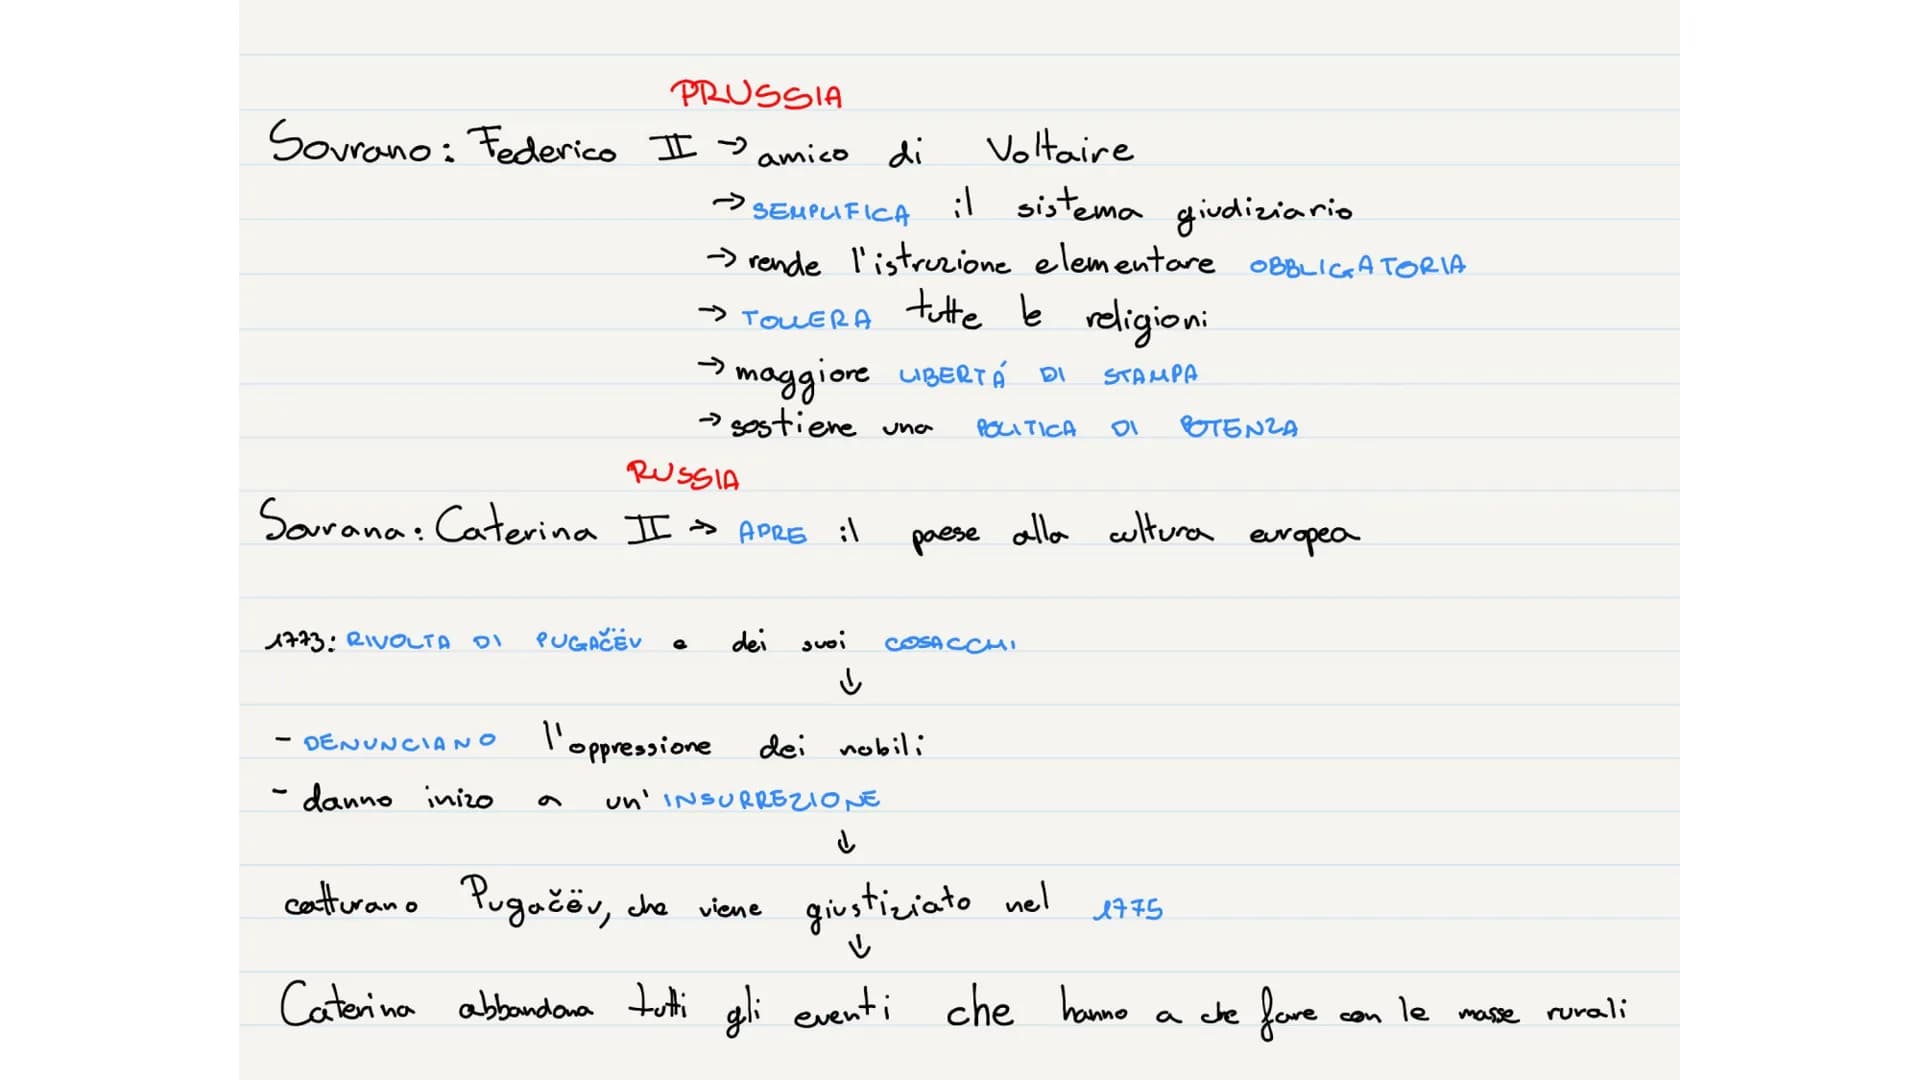 PRUSSIA
Sovrano: Federico II → amico di Voltaire
→ SEMPLIFICA il sistema giudiziario
→ rende l'istruzione elementare OBBLIGATORIA
→ TOLLERA tutte le religioni
→ maggiore LIBERTÁ DI STAMPA
→ sostiene una POLITICA DI POTENZA
RUSSIA
Sovrana: Caterina II → APRE il paese alla cultura europea
1773: RIVOLTA DI PUGAČËV e dei suoi COSACCHI
↓
- DENUNCIANO l'oppressione dei nobili
- danno inizo a un' INSURREZIONE
↓
catturano Pugačëv, che viene giustiziato nel 1775
↓
Caterina abbandona tutti gli eventi che hanno a che fare con le masse rurali